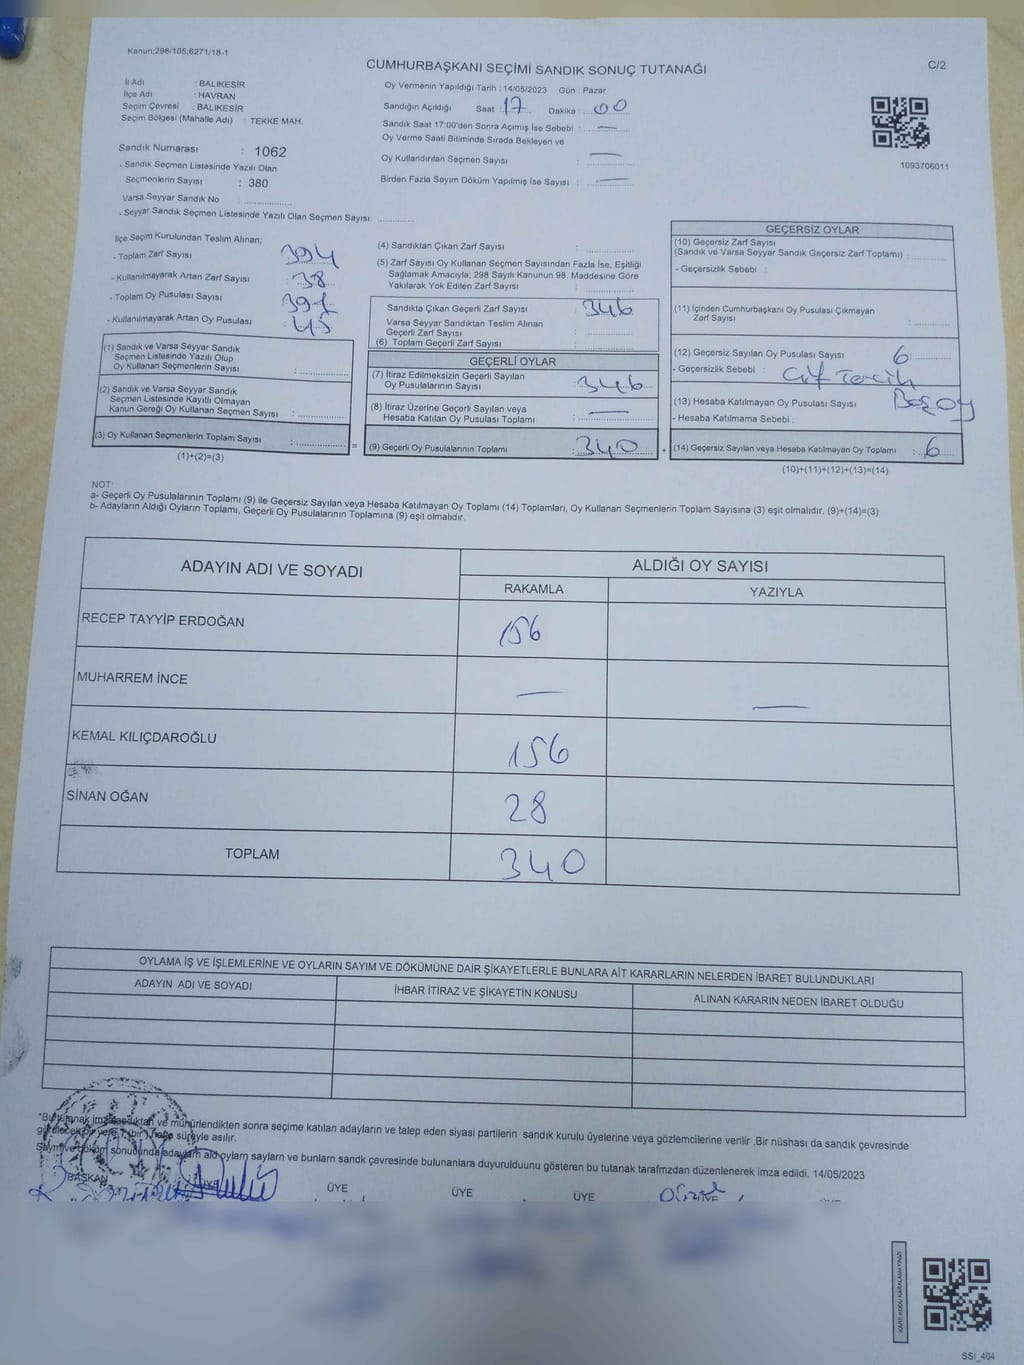 Kanun;298/105;6271/18-1
CUMHURBAŞKANI SEÇİMİ SANDIK SONUÇ TUTANAĞI
C/2
İl Adı : BALIKESİR
İlçe Adı : HAVRAN
Seçim Çevresi : BALIKESİR
Seçim Bölgesi (Mahalle Adı) : TEKKE MAH.
Sandık Numarası : 1062
- Sandık Seçmen Listesinde Yazılı Olan
Seçmenlerin Sayısı : 380
Varsa Seyyar Sandık No :
- Seyyar Sandık Seçmen Listesinde Yazılı Olan Seçmen Sayısı:
Oy Vermenin Yapıldığı Tarih : 14/05/2023 Gün : Pazar
Sandığın Açıldığı Saat : 17 Dakika : 00
Sandık Saat 17:00'den Sonra Açımış İse Sebebi : —
Oy Verme Saati Bitiminde Sırada Bekleyen ve
Oy Kullandırılan Seçmen Sayısı : —
Birden Fazla Sayım Döküm Yapılmış İse Sayısı : —
1093706011
İlçe Seçim Kurulundan Teslim Alınan;
- Toplam Zarf Sayısı : 394
- Kullanılmayarak Artan Zarf Sayısı : 38
- Toplam Oy Pusulası Sayısı
- Kullanılmayarak Artan Oy Pusulası : 45
(1) Sandık ve Varsa Seyyar Sandık
Seçmen Listesinde Yazılı Olup
Oy Kullanan Seçmenlerin Sayısı :
(2) Sandık ve Varsa Seyyar Sandık
Seçmen Listesinde Kayıtlı Olmayan
Kanun Gereği Oy Kullanan Seçmen Sayısı :
(3) Oy Kullanan Seçmenlerin Toplam Sayısı :
(1)+(2)=(3)
(4) Sandıktan Çıkan Zarf Sayısı :
(5) Zarf Sayısı Oy Kullanan Seçmen Sayısından Fazla İse, Eşitliği
Sağlamak Amacıyla; 298 Sayılı Kanunun 98. Maddesine Göre
Yakılarak Yok Edilen Zarf Sayısı :
Sandıkta Çıkan Geçerli Zarf Sayısı : 346
Varsa Seyyar Sandıktan Teslim Alınan
Geçerli Zarf Sayısı :
(6) Toplam Geçerli Zarf Sayısı :
GEÇERLİ OYLAR
(7) İtiraz Edilmeksizin Geçerli Sayılan
Oy Pusulalarının Sayısı : 346
(8) İtiraz Üzerine Geçerli Sayılan veya
Hesaba Katılan Oy Pusulası Toplamı : —
= (9) Geçerli Oy Pusulalarının Toplamı : 340
GEÇERSİZ OYLAR
(10) Geçersiz Zarf Sayısı
(Sandık ve Varsa Seyyar Sandık Geçersiz Zarf Toplamı) :
- Geçersizlik Sebebi :
(11) İçinden Cumhurbaşkanı Oy Pusulası Çıkmayan
Zarf Sayısı :
(12) Geçersiz Sayılan Oy Pusulası Sayısı 6
- Geçersizlik Sebebi : Çif Tercih
(13) Hesaba Katılmayan Oy Pusulası Sayısı Boş Oy
- Hesaba Katılmama Sebebi :
+ (14) Geçersiz Sayılan veya Hesaba Katılmayan Oy Toplamı : 6
(10)+(11)+(12)+(13)=(14)
NOT:
a- Geçerli Oy Pusulalarının Toplamı (9) ile Geçersiz Sayılan veya Hesaba Katılmayan Oy Toplamı (14) Toplamları, Oy Kullanan Seçmenlerin Toplam Sayısına (3) eşit olmalıdır. (9)+(14)=(3)
b- Adayların Aldığı Oyların Toplamı, Geçerli Oy Pusulalarının Toplamına (9) eşit olmalıdır.
ADAYIN ADI VE SOYADI
ALDIĞI OY SAYISI
RAKAMLA YAZIYLA
RECEP TAYYİP ERDOĞAN 156
MUHARREM İNCE — —
KEMAL KILIÇDAROĞLU 156
SİNAN OĞAN 28
TOPLAM 340
OYLAMA İŞ VE İŞLEMLERİNE VE OYLARIN SAYIM VE DÖKÜMÜNE DAİR ŞİKAYETLERLE BUNLARA AİT KARARLARIN NELERDEN İBARET BULUNDUKLARI
ADAYIN ADI VE SOYADI İHBAR İTİRAZ VE ŞİKAYETİN KONUSU ALINAN KARARIN NEDEN İBARET OLDUĞU
ve mühürlendikten sonra seçime katılan adayların ve talep eden siyasi partilerin sandık kurulu üyelerine veya gözlemcilerine verilir .Bir nüshası da sandık çevresinde
süreyle asılır.
sonucunda adayların ald oylarn saylarn ve bunlarn sandk çevresinde bulunanlara duyurulduunu gösteren bu tutanak tarafmzdan düzenlenerek imza edildi. 14/05/2023
BAŞKAN ÜYE ÜYE ÜYE ÜYE ÜYE
SSİ_404